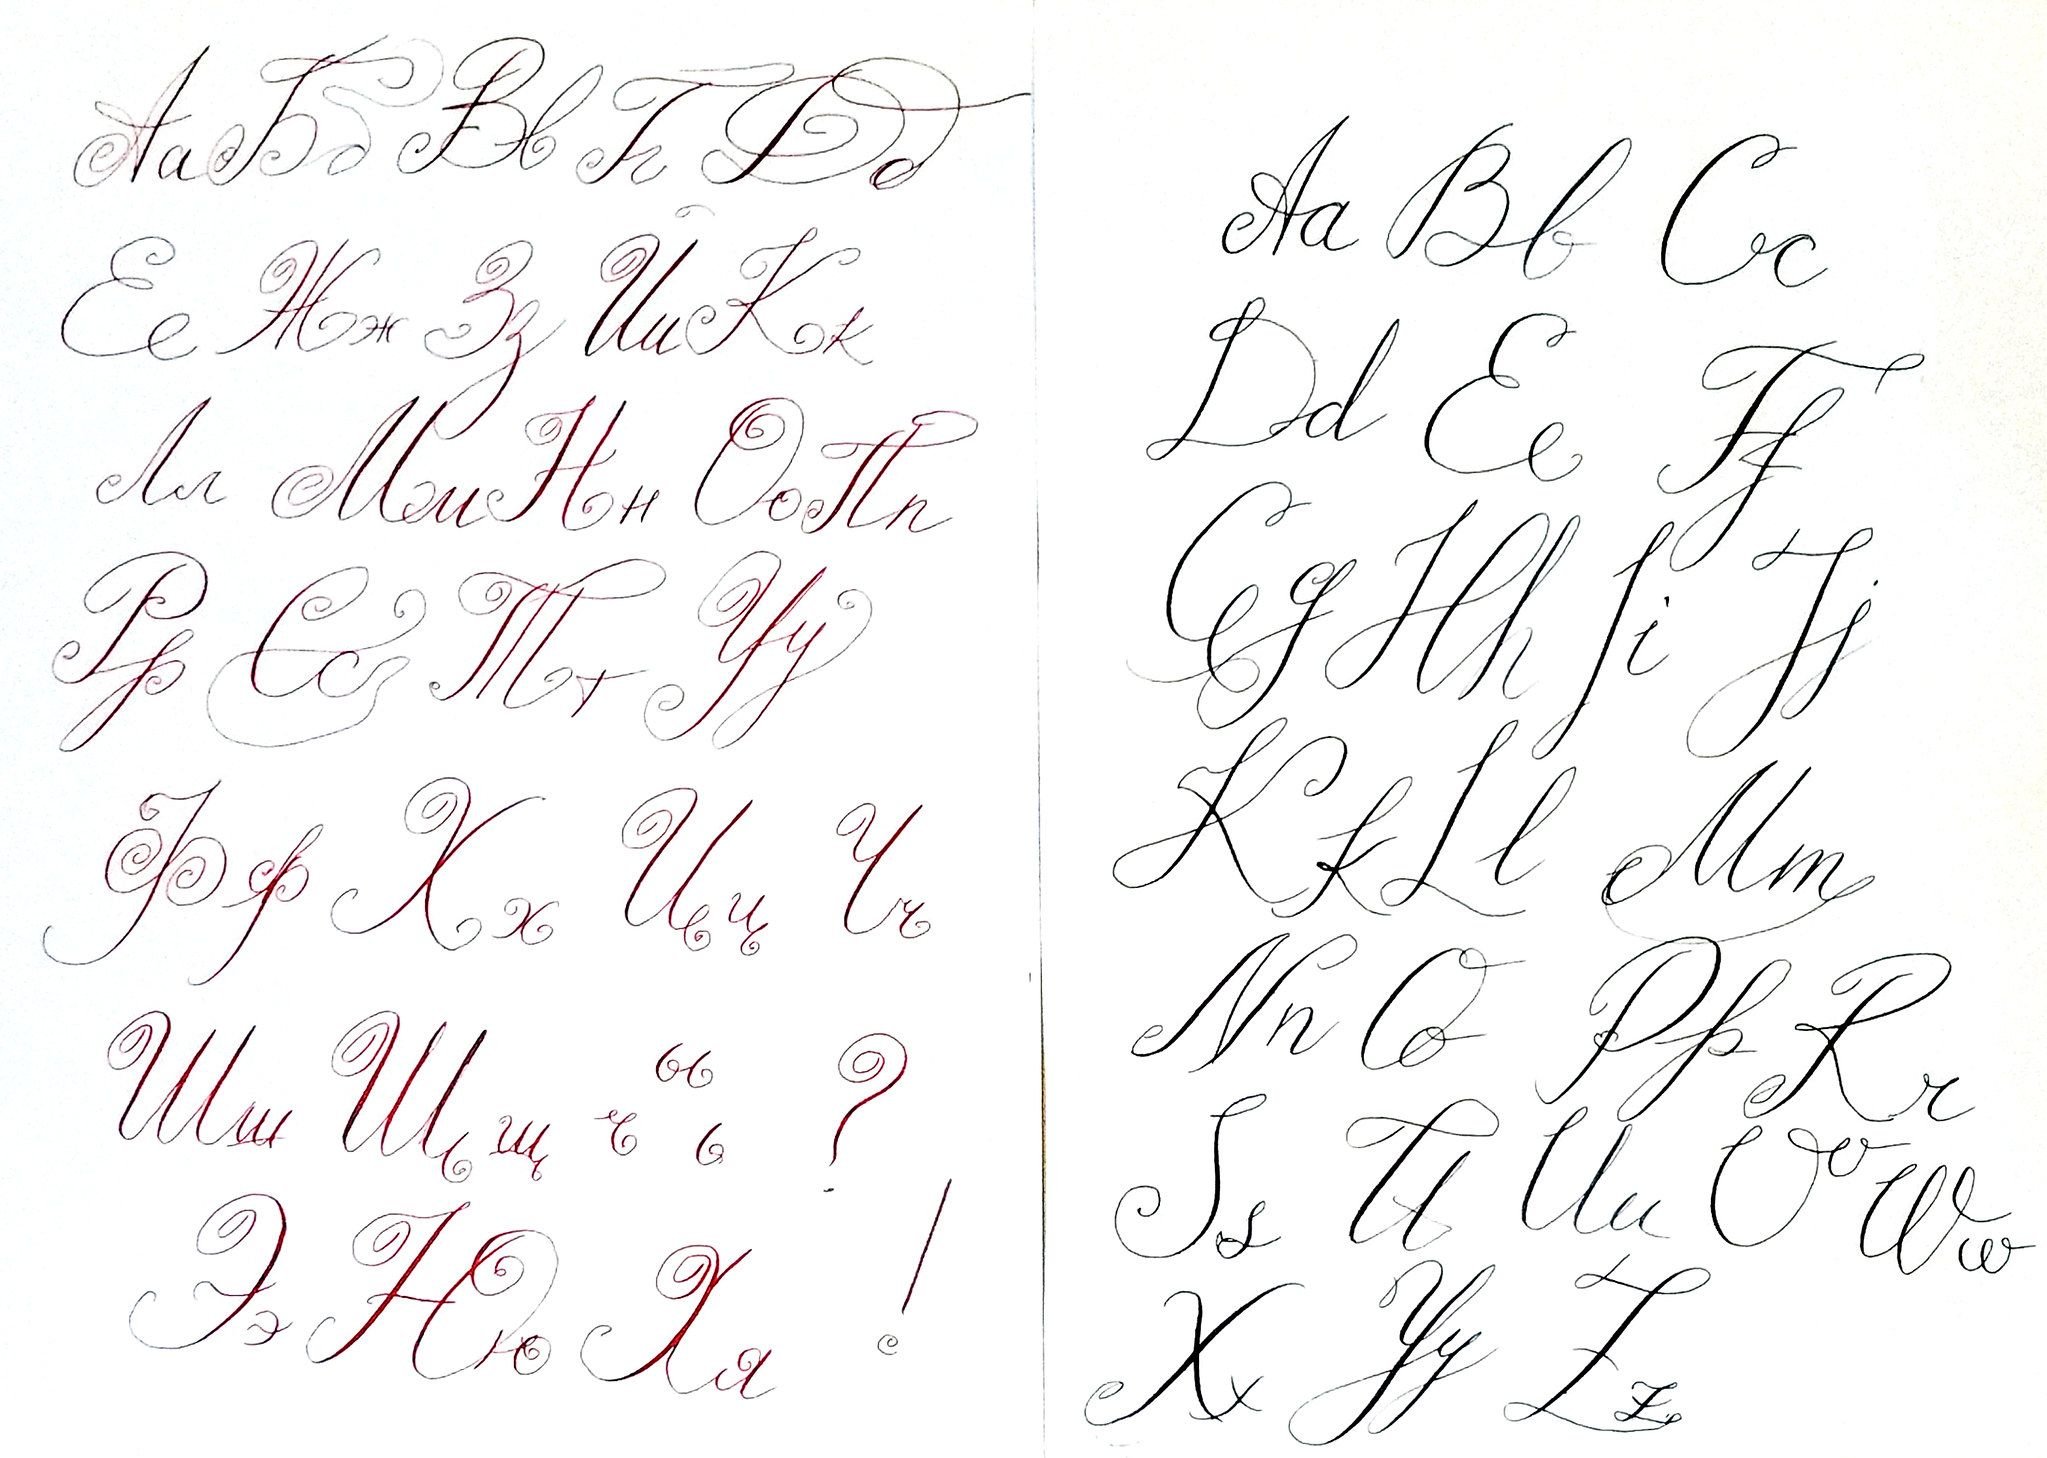 Аа Бб Вв Гг Дд
Ее Жж Зз Ии Кк
Лл Мм Нн Оо Пп
Рр Сс Тт Уу
Фф Хх Цц Чч
Шш Щщ ъ ы ь ?
Ээ Юю Яя !
Aa Bb Cc
Dd Ee Ff
Gg Hh Ii Jj
Kk Ll Mm
Nn O Pp Rr
Ss Tt Uu Vv Ww
Xx Yy Zz